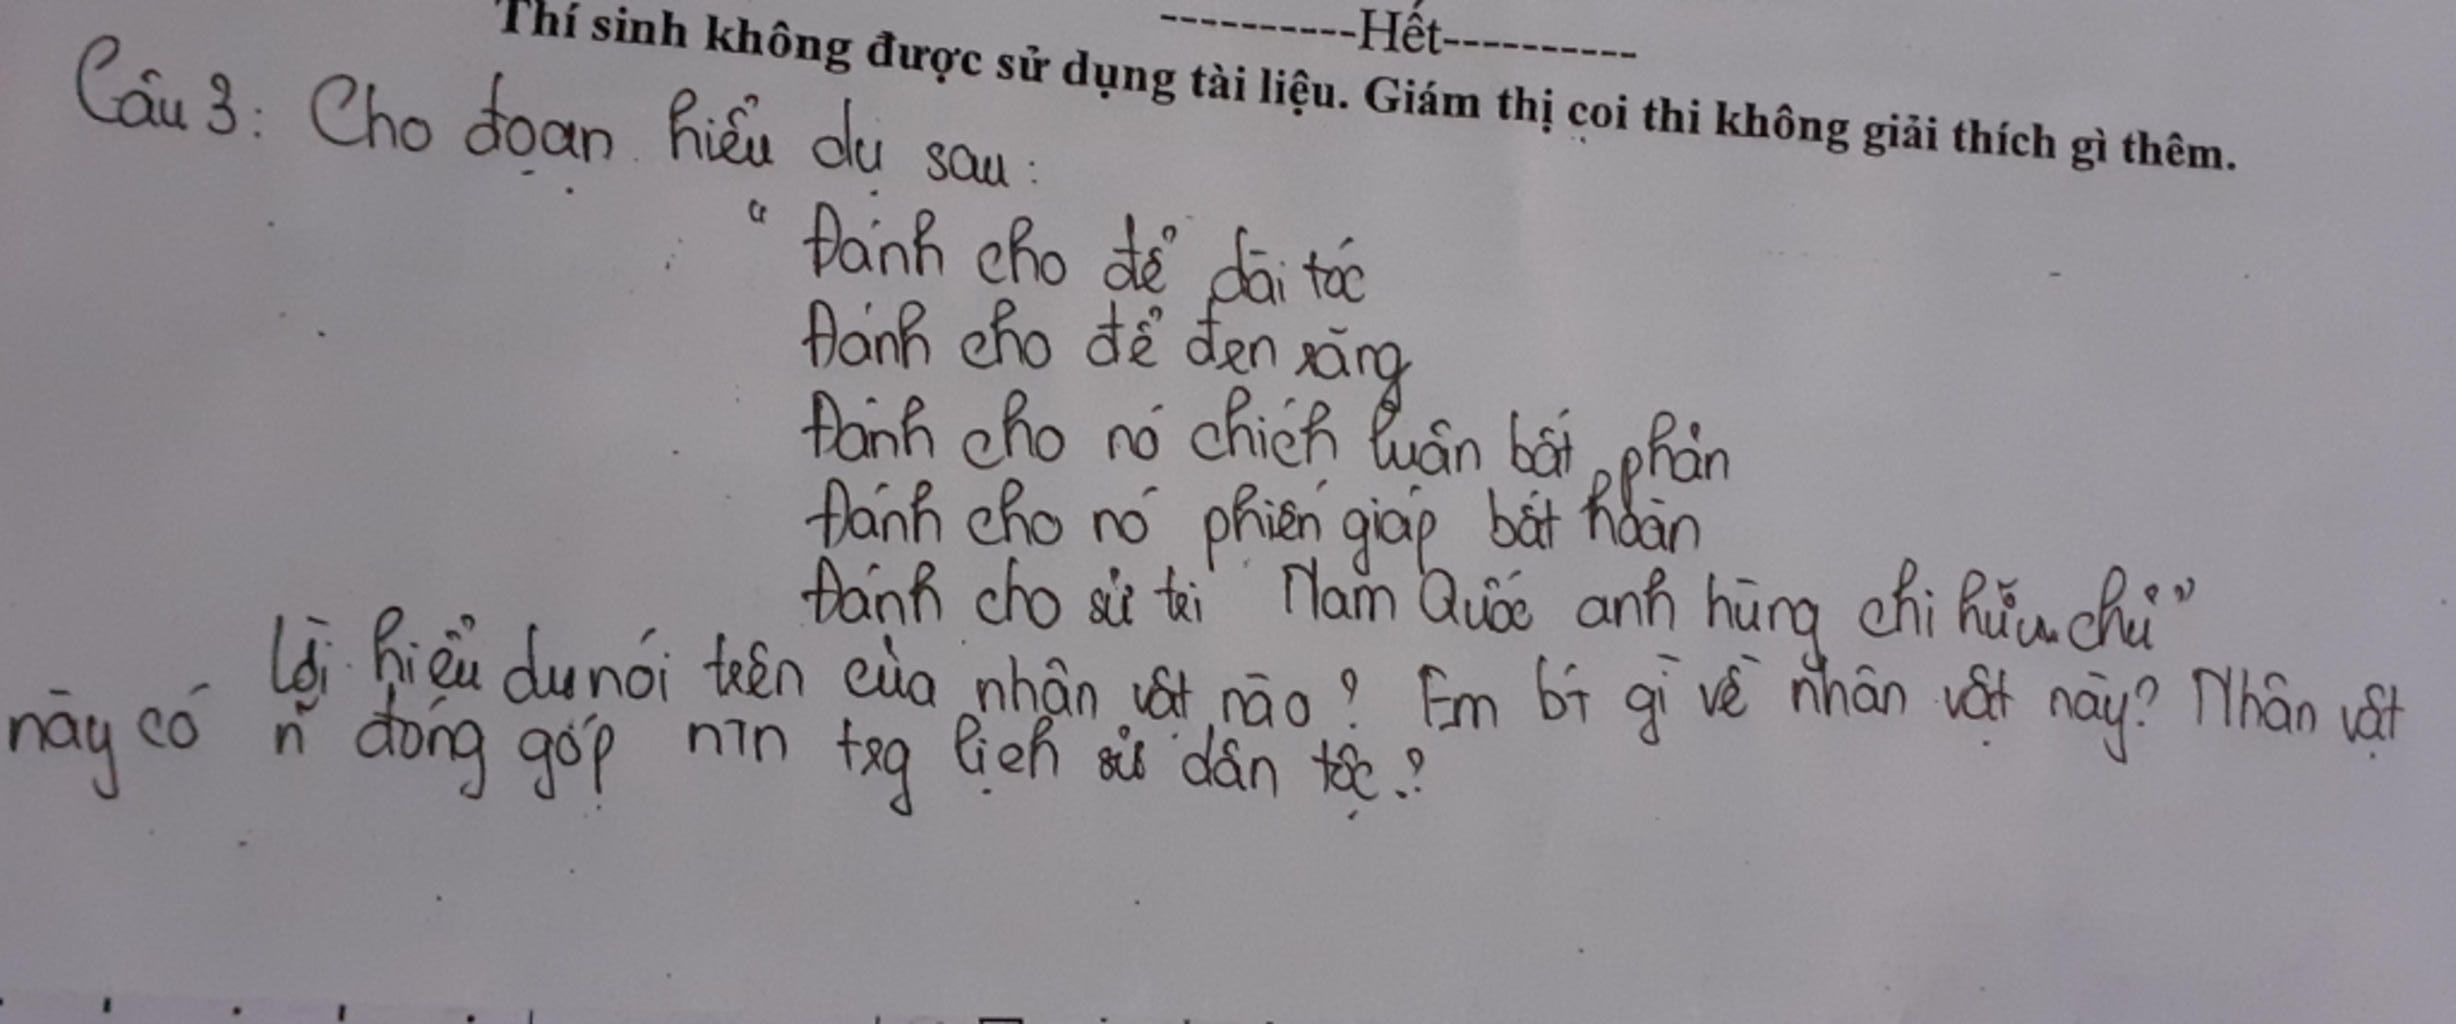 ----------Hết----------
Thí sinh không được sử dụng tài liệu. Giám thị coi thi không giải thích gì thêm.
Câu 3: Cho đoạn hiểu dụ sau:
"Đánh cho để dài tóc
Đánh cho để đen răng
Đánh cho nó chích luân bất phản
Đánh cho nó phiến giáp bất hoàn
Đánh cho sử tri Nam Quốc anh hùng chi hữu chủ"
Lời hiểu dụ nói trên của nhân vật nào? Em bt gì về nhân vật này? Nhân vật
này có n~ đóng góp ntn trg lịch sử dân tộc?